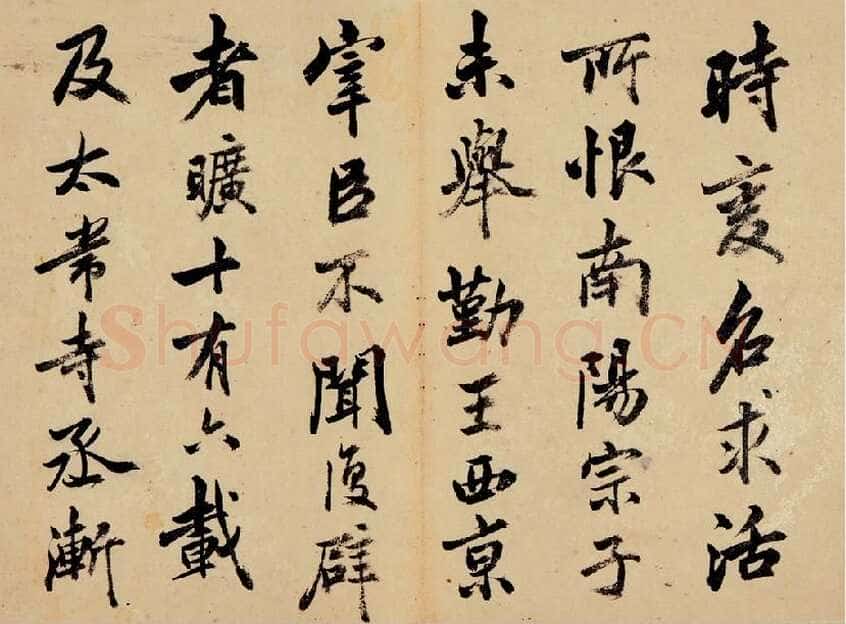 時變名求活
所恨南陽宗子
未舉勤王西京
宰臣不聞復辟
者曠十有六載
及太常寺丞漸
Shufawang.CN